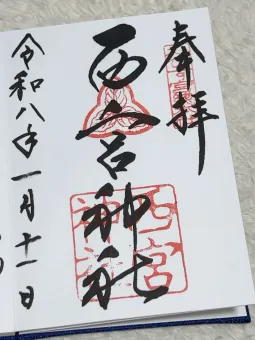 奉拝
西宮神社
令和八年一月十一日
西宮神社